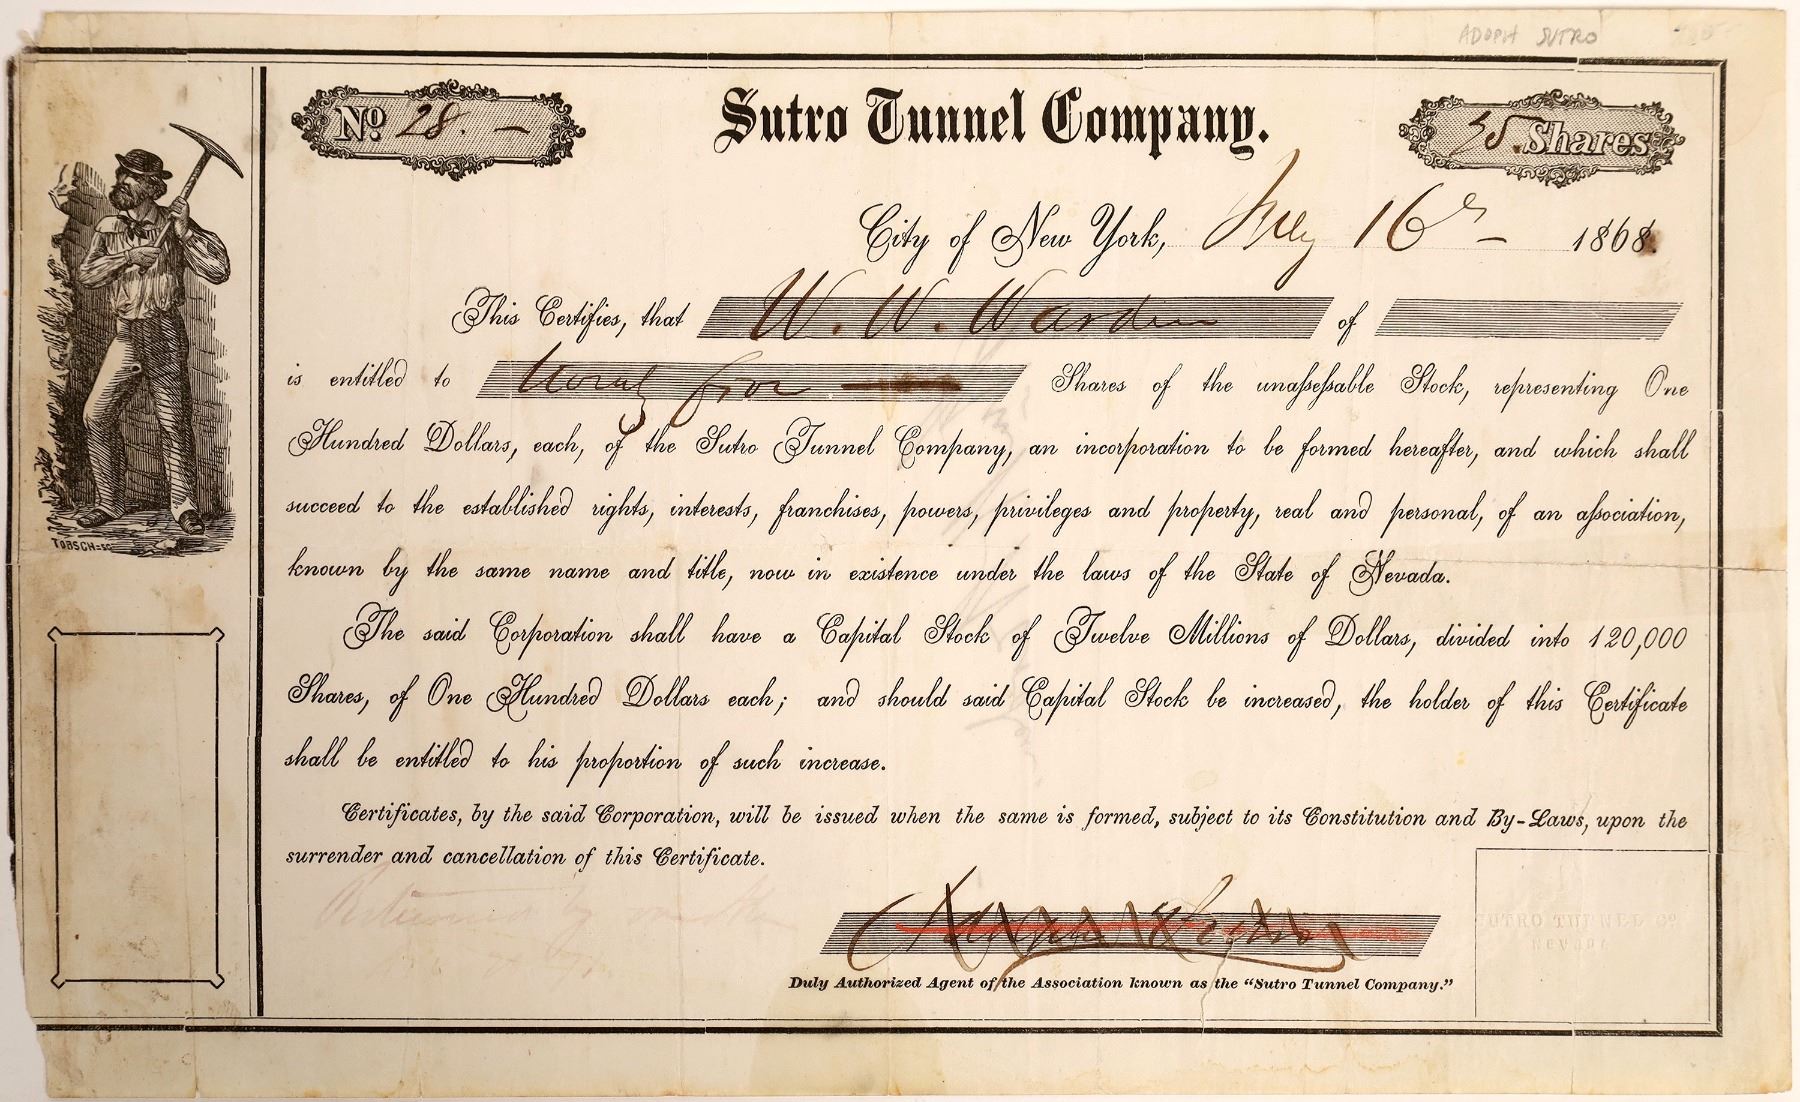 ADOPH SUTRO
No. 28. –
Sutro Tunnel Company.
Shares
City of New York, July 16th – 1868.
This Certifies, that W. W. Warden of
is entitled to five Shares of the unassessable Stock, representing One
Hundred Dollars, each, of the Sutro Tunnel Company, an incorporation to be formed hereafter, and which shall
succeed to the established rights, interests, franchises, powers, privileges and property, real and personal, of an association,
known by the same name and title, now in existence under the laws of the State of Nevada.
The said Corporation shall have a Capital Stock of Twelve Millions of Dollars, divided into 120,000
Shares, of One Hundred Dollars each; and should said Capital Stock be increased, the holder of this Certificate
shall be entitled to his proportion of such increase.
Certificates, by the said Corporation, will be issued when the same is formed, subject to its Constitution and By-Laws, upon the
surrender and cancellation of this Certificate.
Adolph Sutro
Duly Authorized Agent of the Association known as the "Sutro Tunnel Company."
SUTRO TUNNEL CO.
NEVADA
TOBSCH=SC